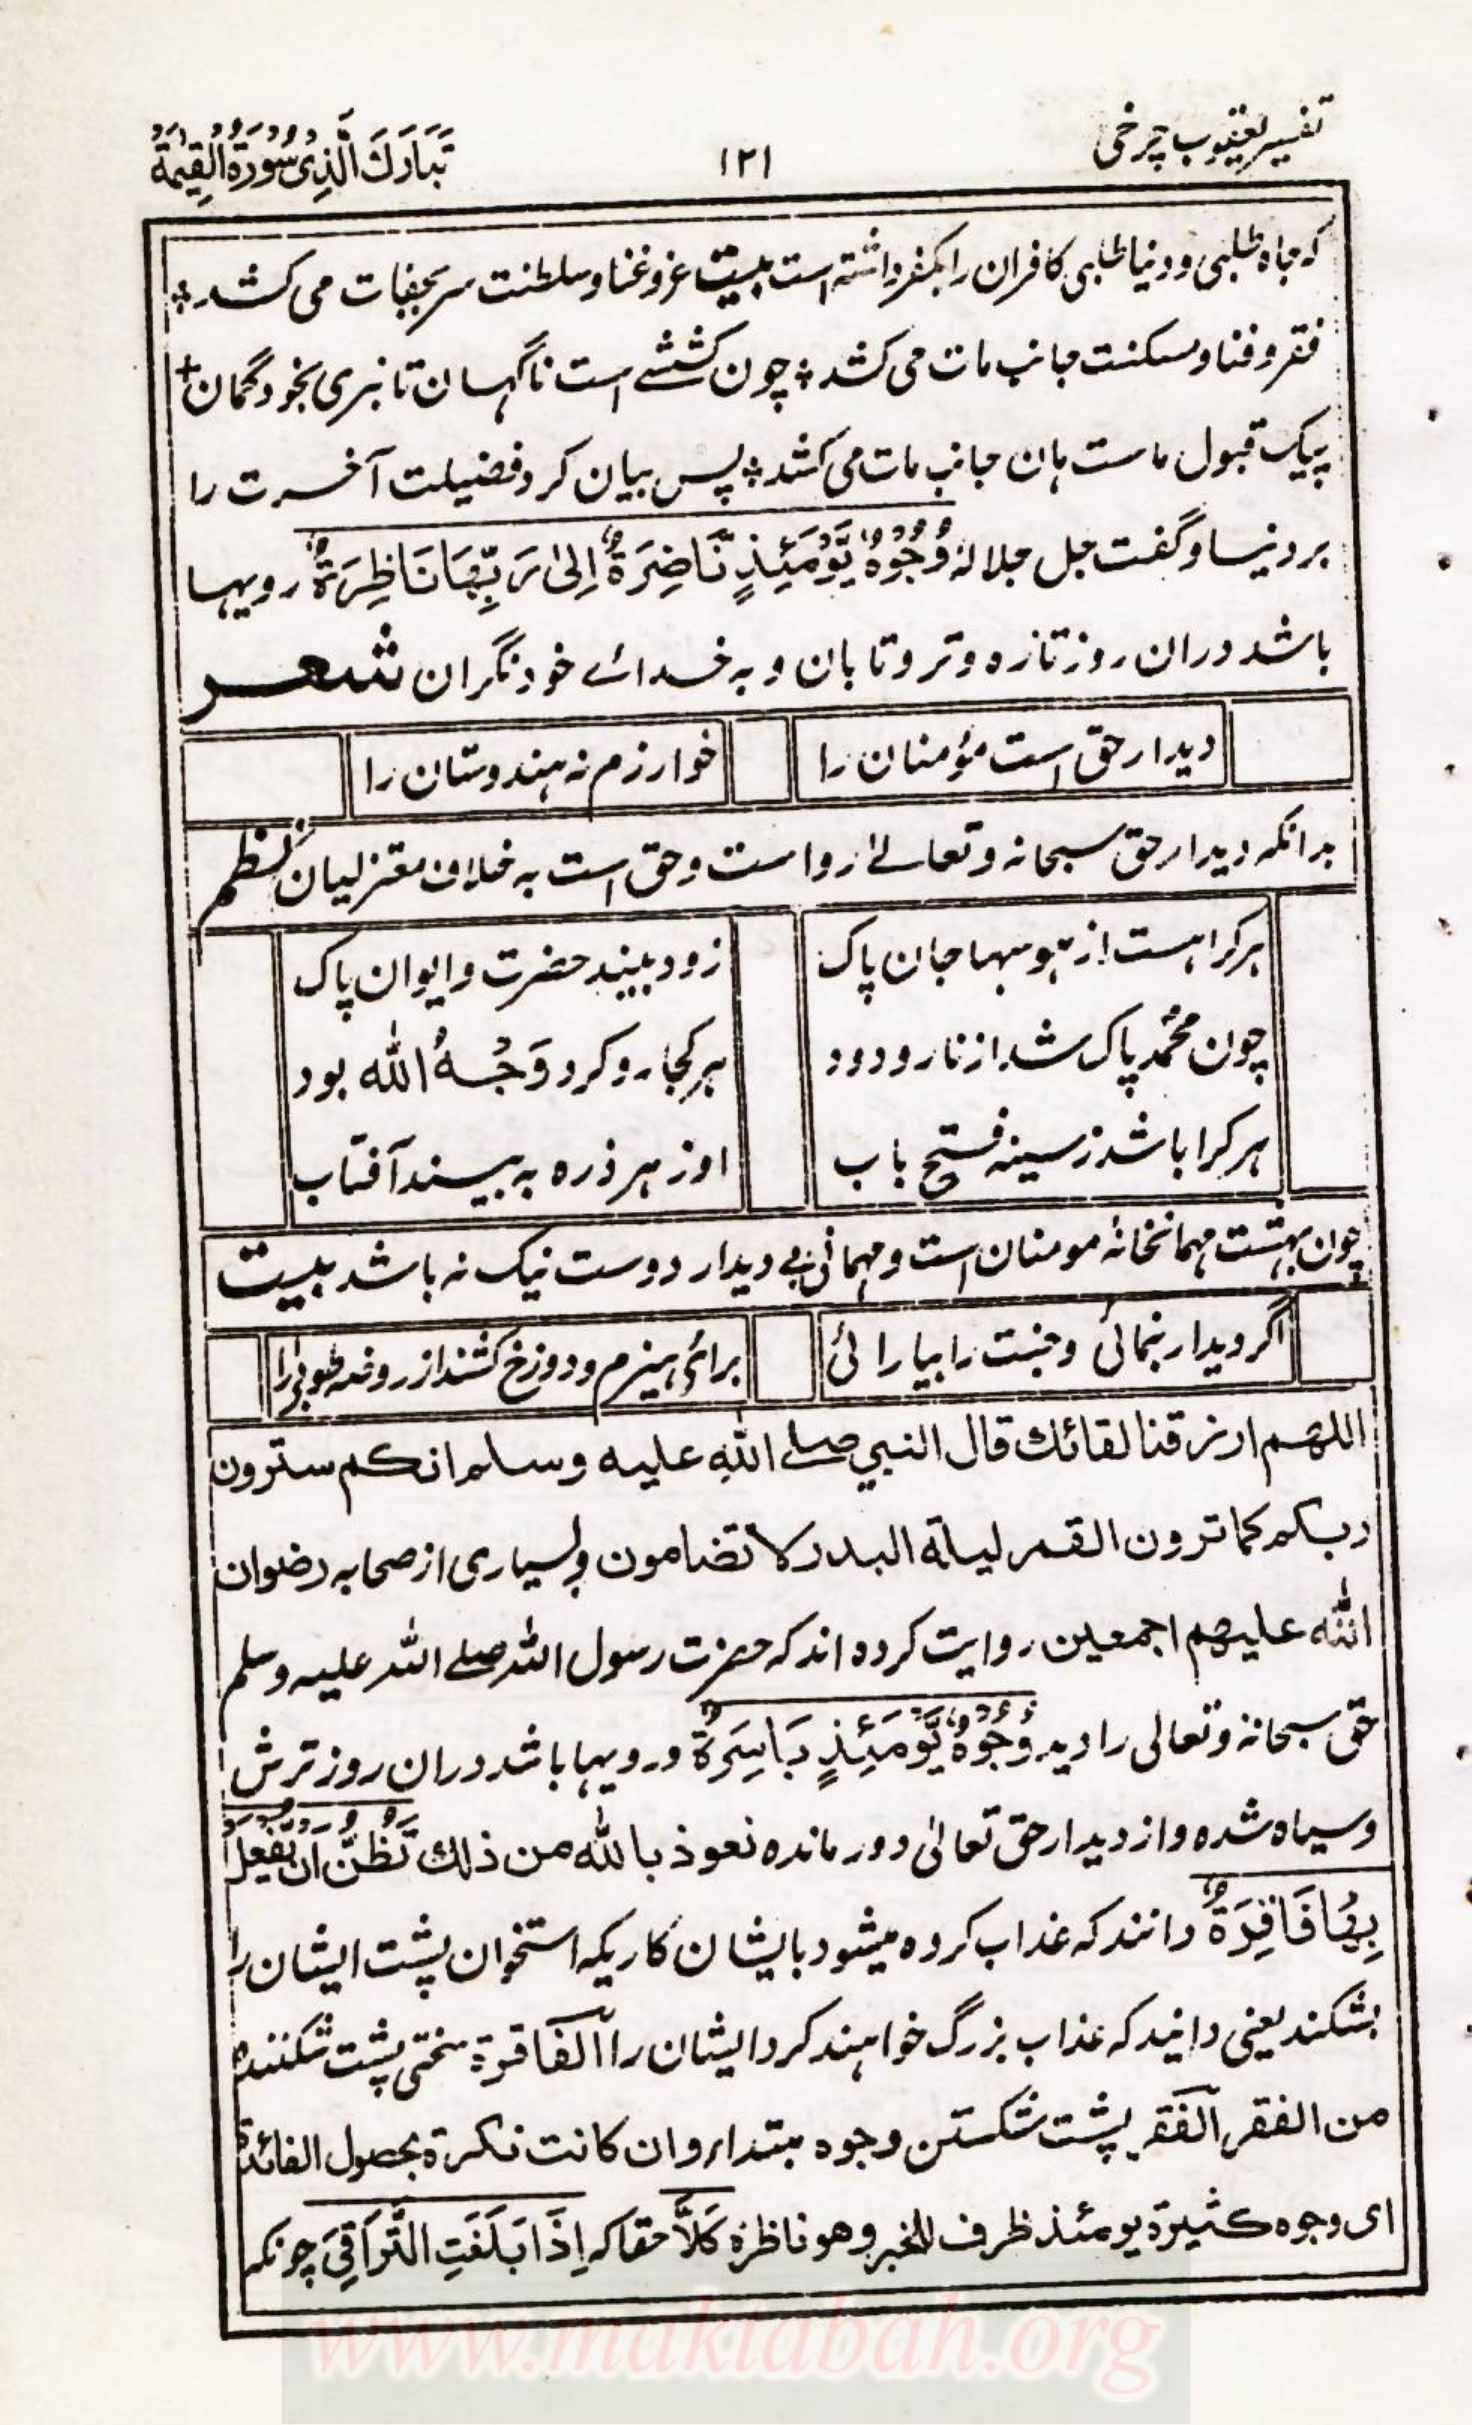 تفسیر یعقوب چرخی
١٢١
تَبَارَكَ الَّذِیْ سُوْرَةُ الْقِیٰمَةُ
که جاه طلبی و دنیا طلبی کافران را بکفر داشته است بیت عز و غنا و سلطنت سر بجفات می کشد ⁘
فقر و فنا و مسکنت جانب مات می کشد ⁘ چون کششے است ناگہان تا نبری بخود گمان +
پیک قبول ماست ہان جانب مات می کشد ⁘ پس بیان کرد فضیلت آخرت را
بر دنیا و گفت جل جلالہ وُجُوْهٌ یَّوْمَئِذٍ نَّاضِرَةٌ اِلٰی رَبِّهَا نَاظِرَةٌ رویہا
باشد دران روز تازه و تر و تابان و بہ خدائے خود نگران شعر
دیدار حق است مؤمنان را خوارزم نہ ہندوستان را
بدانکہ دیدار حق سبحانہ و تعالےٰ روا ست و حق است بہ خلاف معتزلیان نظم
ہر کرا ہست از ہوسہا جان پاک زود بیند حضرت و ایوان پاک
چون محمّد پاک شد از نار و دود ہر کجا رو کرد وَجْهُ الله بود
ہر کرا باشد ز سینہ فتح باب او ز ہر ذره بہ بیند آفتاب
چون بہشت مہمانخانۂ مومنان است و مہمانی بے دیدار دوست نیک نہ باشد بیت
اگر دیدار بنمائی و جنت را بیارا ئی برائے ہیزم و دوزخ کشند از روضہ طوبیٰ را
اللهم ارزقنا لقائك قال النبي صلے اللهِ علیه وسلم انكم سترون
ربكم كما ترون القمر لیلة البدر لا تضامون و بسیاری از صحابہ رضوان
الله علیهم اجمعین روایت کرده اند کہ حضرت رسول اللہ صلے اللہ علیہ وسلم
حق سبحانہ و تعالی را دید وُجُوْهٌ یَّوْمَئِذٍ بَاسِرَةٌ و رویہا باشد دران روز ترش
و سیاه شده و از دیدار حق تعالیٰ دور مانده نعوذ بالله من ذلك تَظُنُّ اَنْ یُّفْعَلَ
بِهَا فَاقِرَةٌ دانند کہ عذاب کرده میشود بایشان کاریکہ استخوان پشت ایشان را
بشکند یعنی دانید کہ عذاب بزرگ خواہند کرد ایشان را الفاقرة سختی پشت شکننده
من الفقر الفقر پشت شکستن وجوه مبتداء وان كانت نكرة بحصول الفائدة
ای وجوه كثیرة یومئذ ظرف للخبر وهو ناظرة كَلَّا حقا کہ اِذَا بَلَغَتِ التَّرَاقِیَ چونکہ
www.maktabah.org